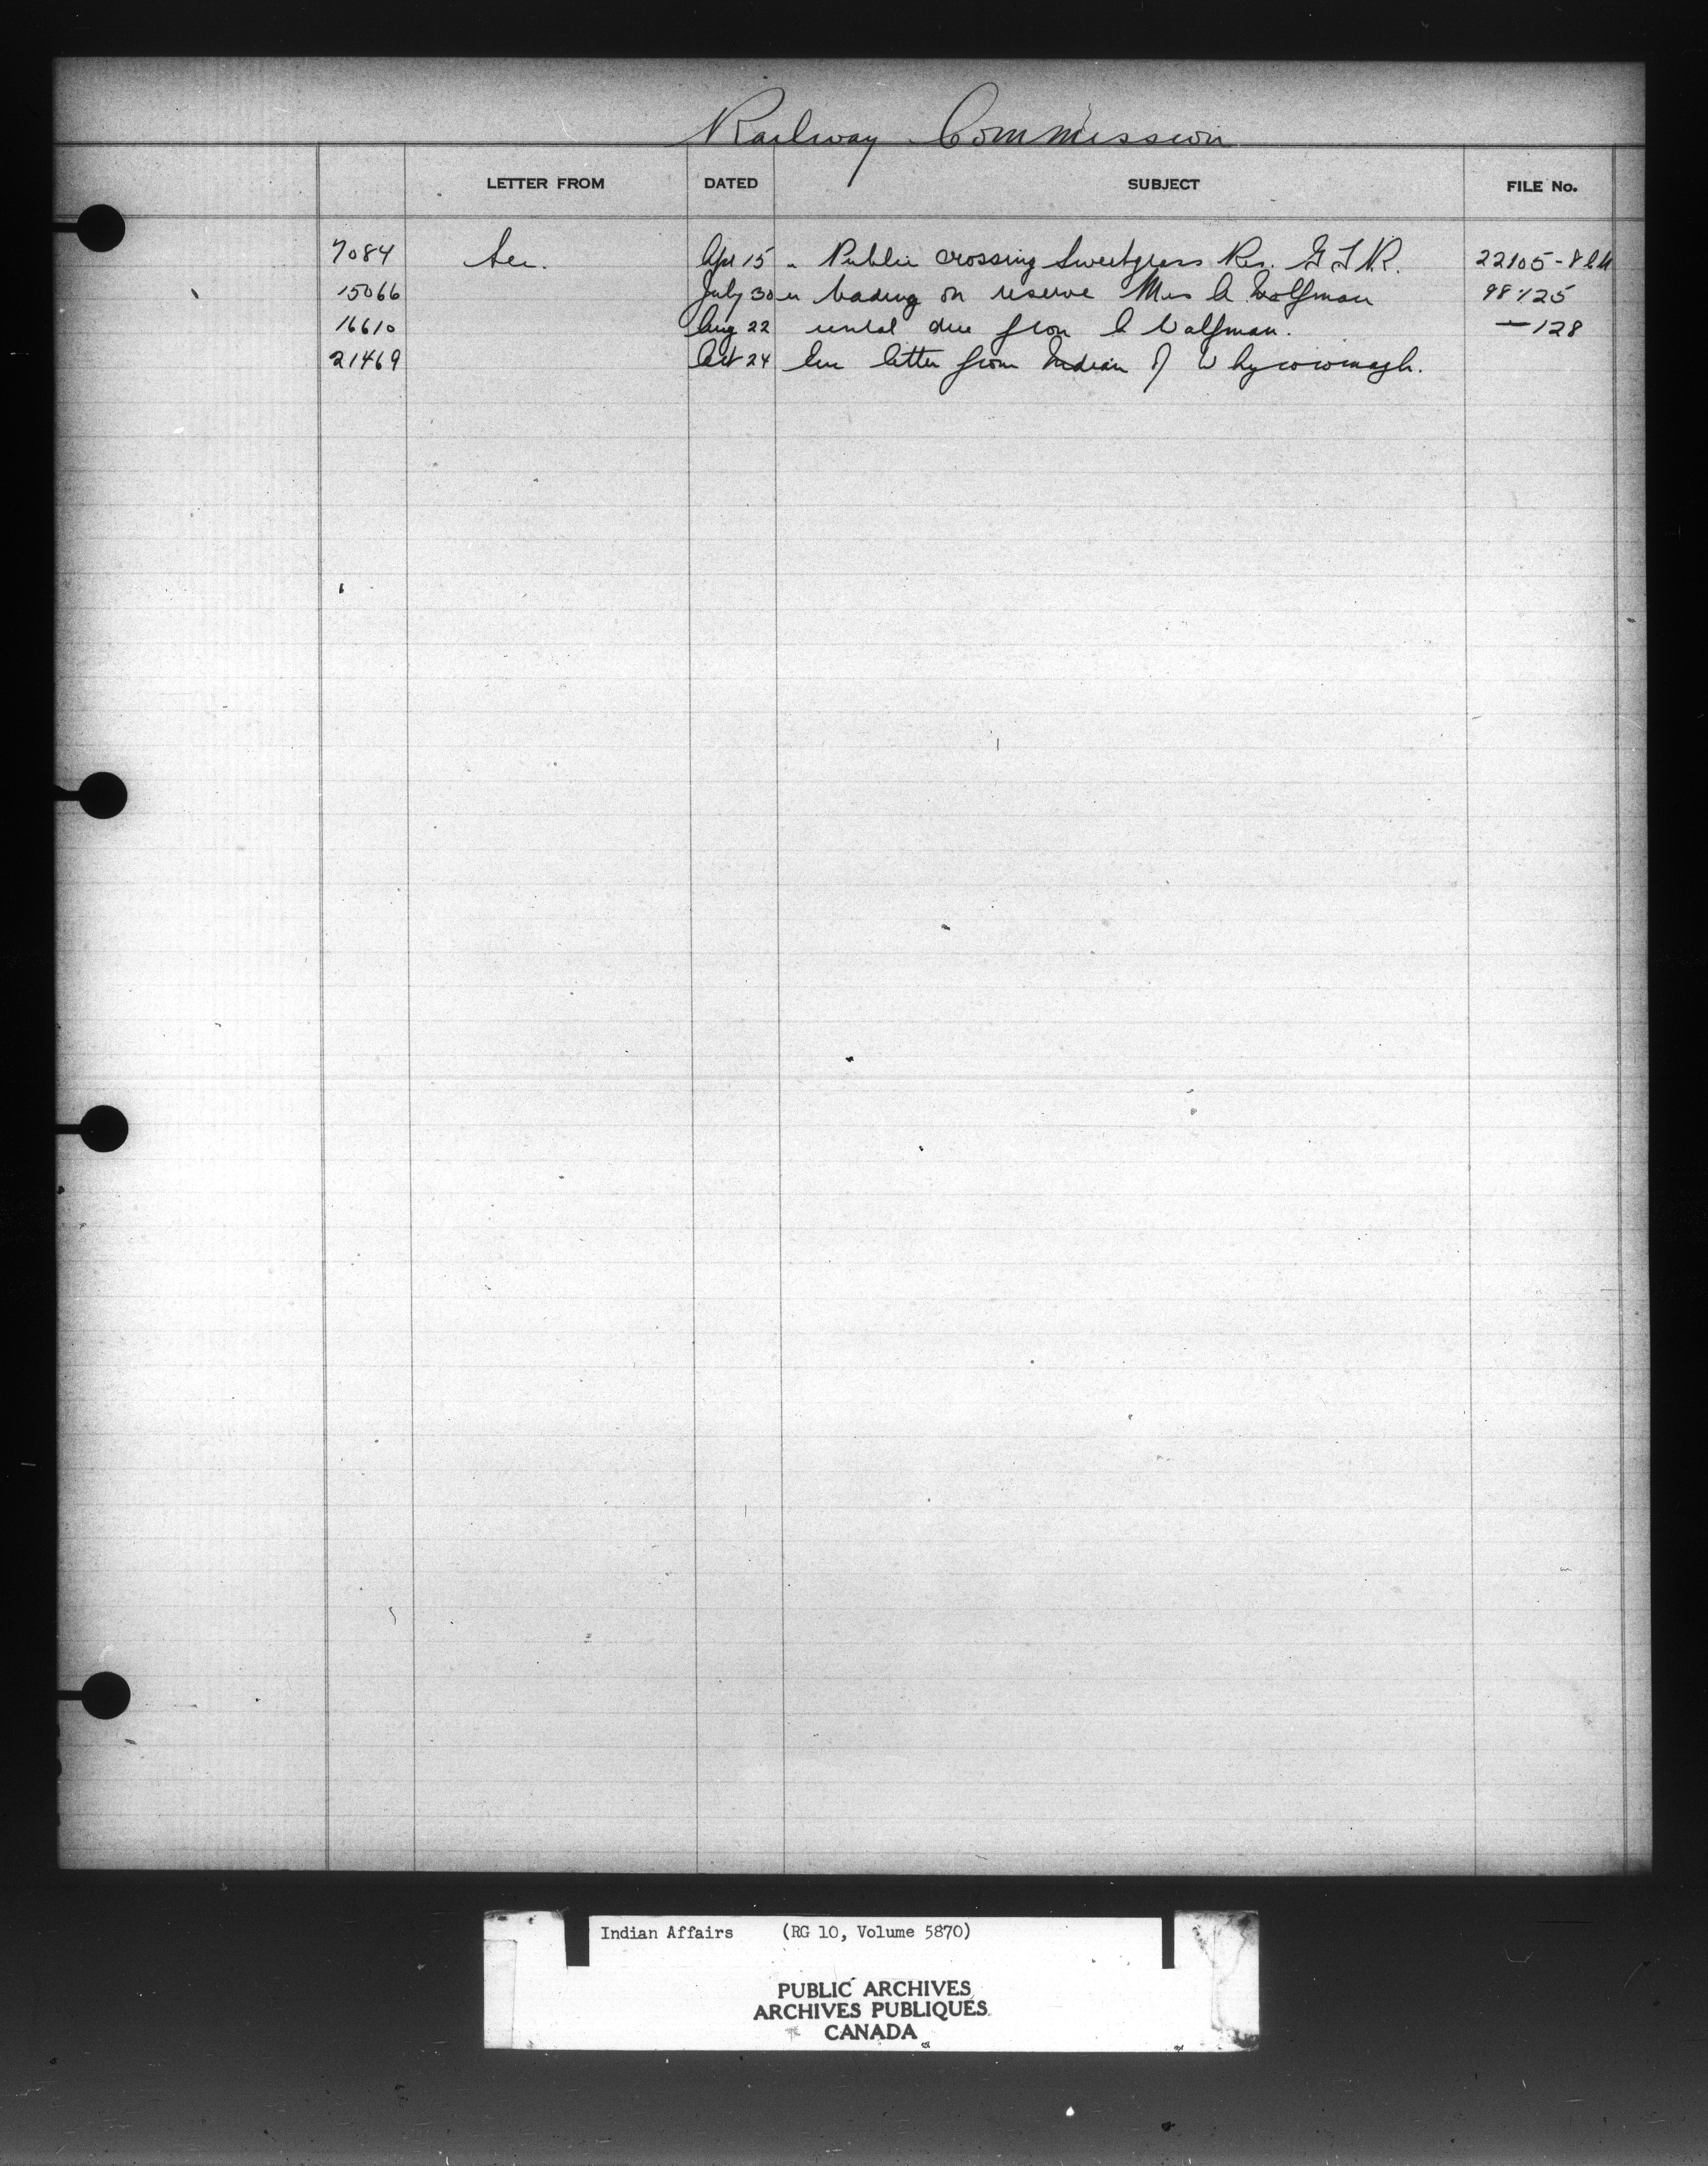 Railway Commission
LETTER FROM DATED SUBJECT FILE No.
7084 Sec. Apr 15 Public crossing Sweetgrass Res. G.T.R. 22105-8
15066 July 30 trading on reserve Mrs A Wolfman 98725
16610 Aug 22 rental due from C Wolfman. — 128
21469 Oct 24 letter from Indian of Whycocomagh.
Indian Affairs (RG 10, Volume 5870)
PUBLIC ARCHIVES
ARCHIVES PUBLIQUES
CANADA